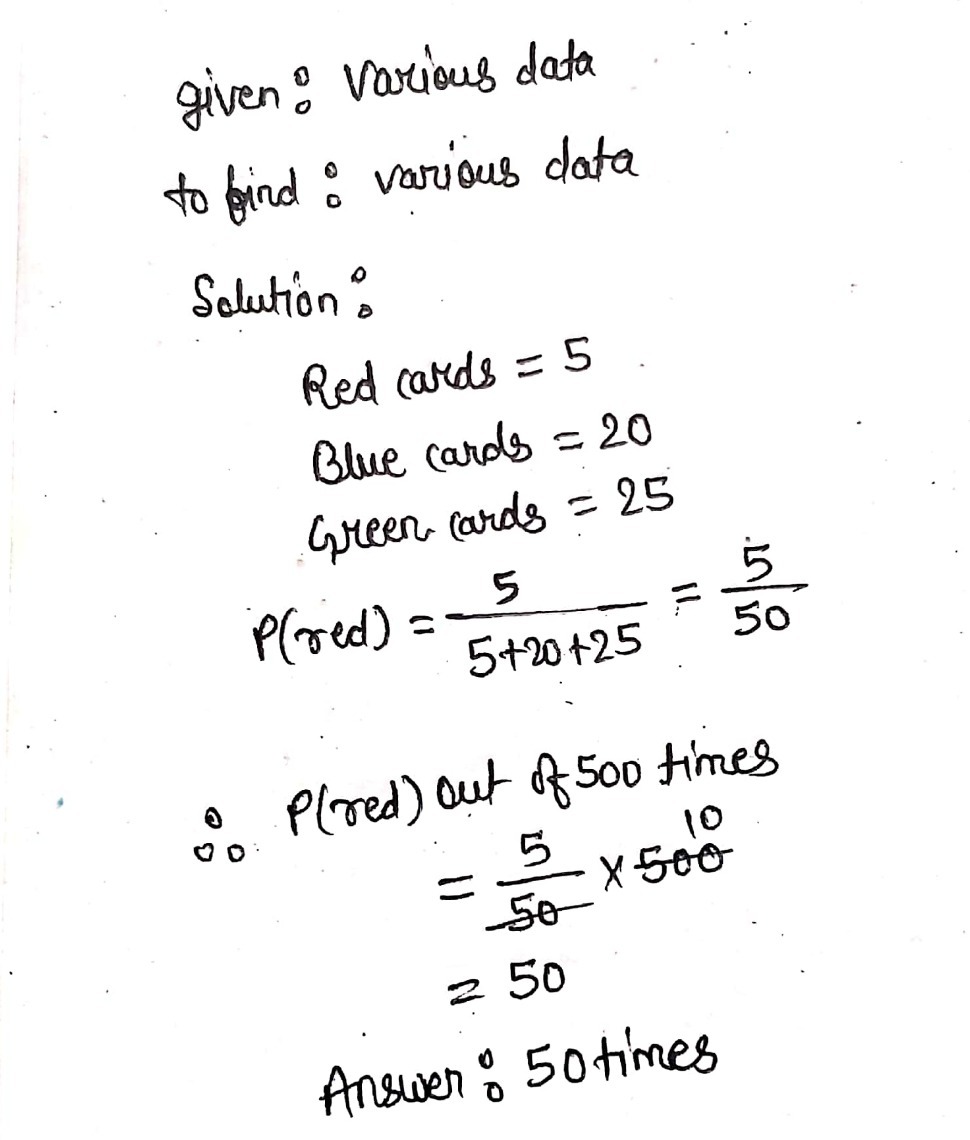 given : Various data
to find : various data
Solution :
Red cards = 5
Blue cards = 20
Green cards = 25
P(red) = 5/(5+20+25) = 5/50
∴ P(red) out of 500 times
10
= 5/50 × 500
= 50
Answer : 50 times